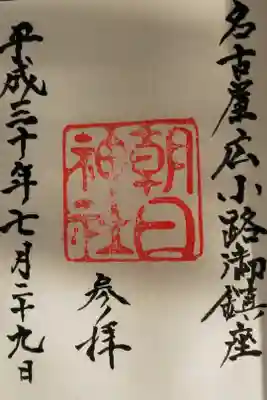 名古屋広小路御鎮座
朝日神社
参拝
平成三十年七月二十九日